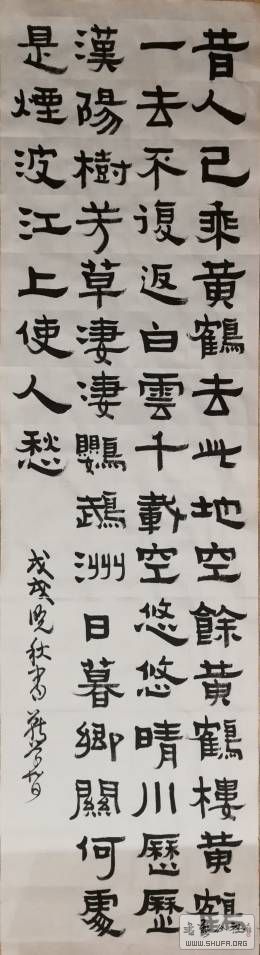 昔人已乘黃鶴去此地空餘黃鶴樓黃鶴
一去不復返白雲千載空悠悠晴川歷歷
漢陽樹芳草淒淒鸚鵡洲日暮鄉關何處
是煙波江上使人愁
戊戌晚秋書
WWW.SHUFA.ORG